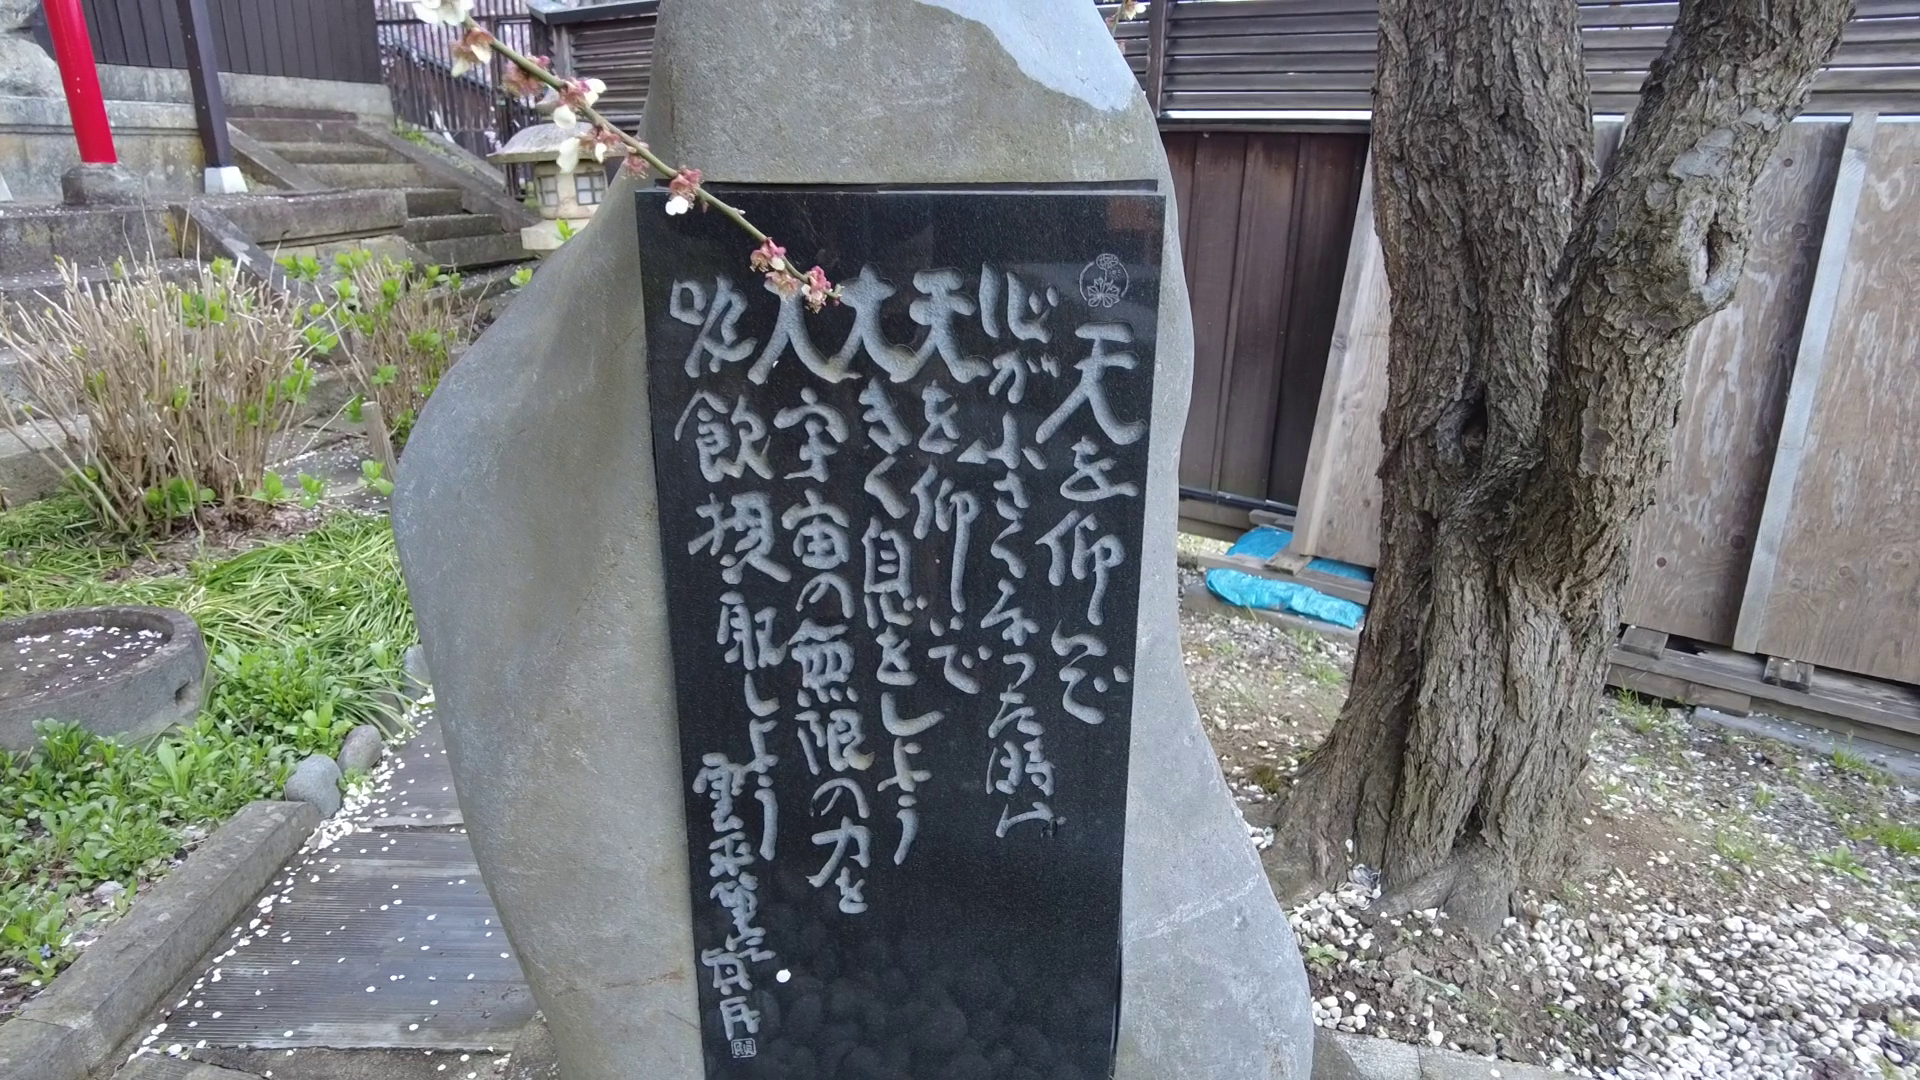 天を仰いで
心が小さくなった時は
天を仰いで
大きく息をしよう
大宇宙の無限の力を
吸飲摂取しよう